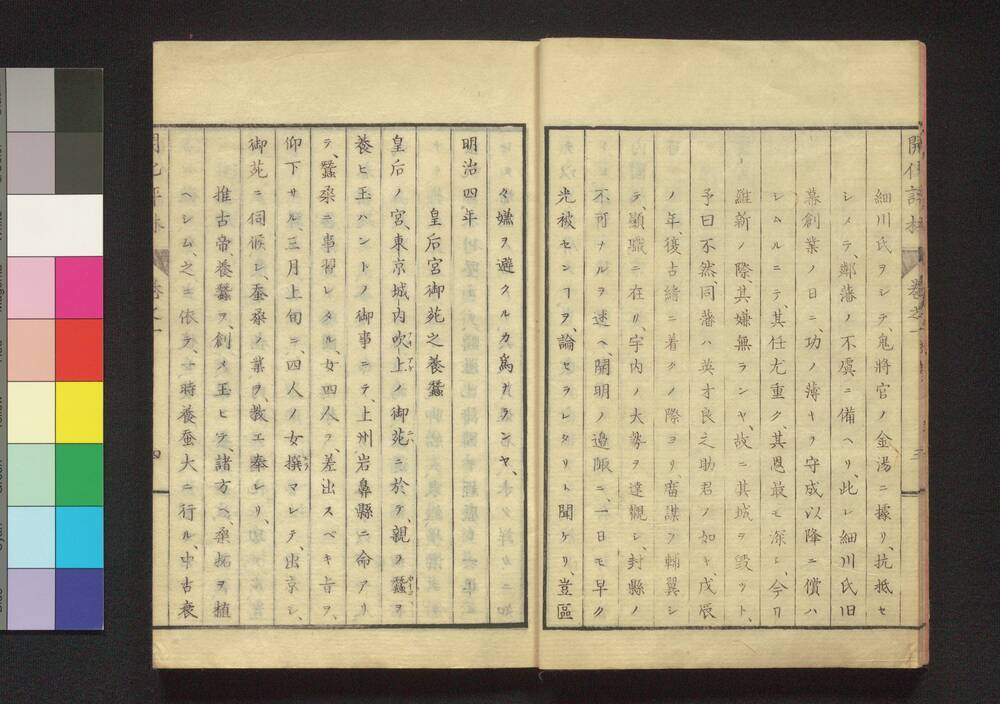 細川氏ヲシテ、鬼將官ノ金湯ニ據リ、抗抵セ
シメテ、鄰藩ノ不虞ニ備ヘリ、此レ細川氏旧
幕創業ノ日ニ、功ノ薄キヲ守成以降ニ償ハ
レムルニテ、其任尤重ク、其恩最モ深シ、今ヤ
維新ノ際、其嫌無ランヤ、故ニ其城ヲ毀ツト、
予曰不然、同藩ハ英才良之助君ノ如キ、戊辰
ノ年、復古緒ニ着クノ際ヨリ、奮謀ヲ輔翼シ
テ、顯職ニ在リ、宇内ノ大勢ヲ達觀シ、封縣ノ
不可ナルヲ述ヘ、開明ノ邉陬ニ、一日モ早ク
光被センヿヲ、論セラレタリト聞ケリ、豈區
々嫌ヲ避クルカ爲ナランヤ、
明治四年
皇后宮御苑之養蠶
皇后ノ宮、東京城内吹上ノ御苑ニ於テ、親ラ蠶ヲ
養ヒ玉ハントノ御事ニテ、上州岩鼻縣ニ命アリ
テ、蠶桒ニ事習レタル、女四人ヲ、差出スベキ旨ヲ、
仰下サル、三月上旬ニ、四人ノ女撰マレテ、出京シ、
御苑ニ伺候シ、蚕桒ノ業ヲ、教エ奉レリ、
推古帝、養蠶ヲ、創メ玉ヒテ、諸方ヘ、桒柘ヲ植
ヘシム、之ニ依テ、一時養蚕大ニ行ル、中古衰